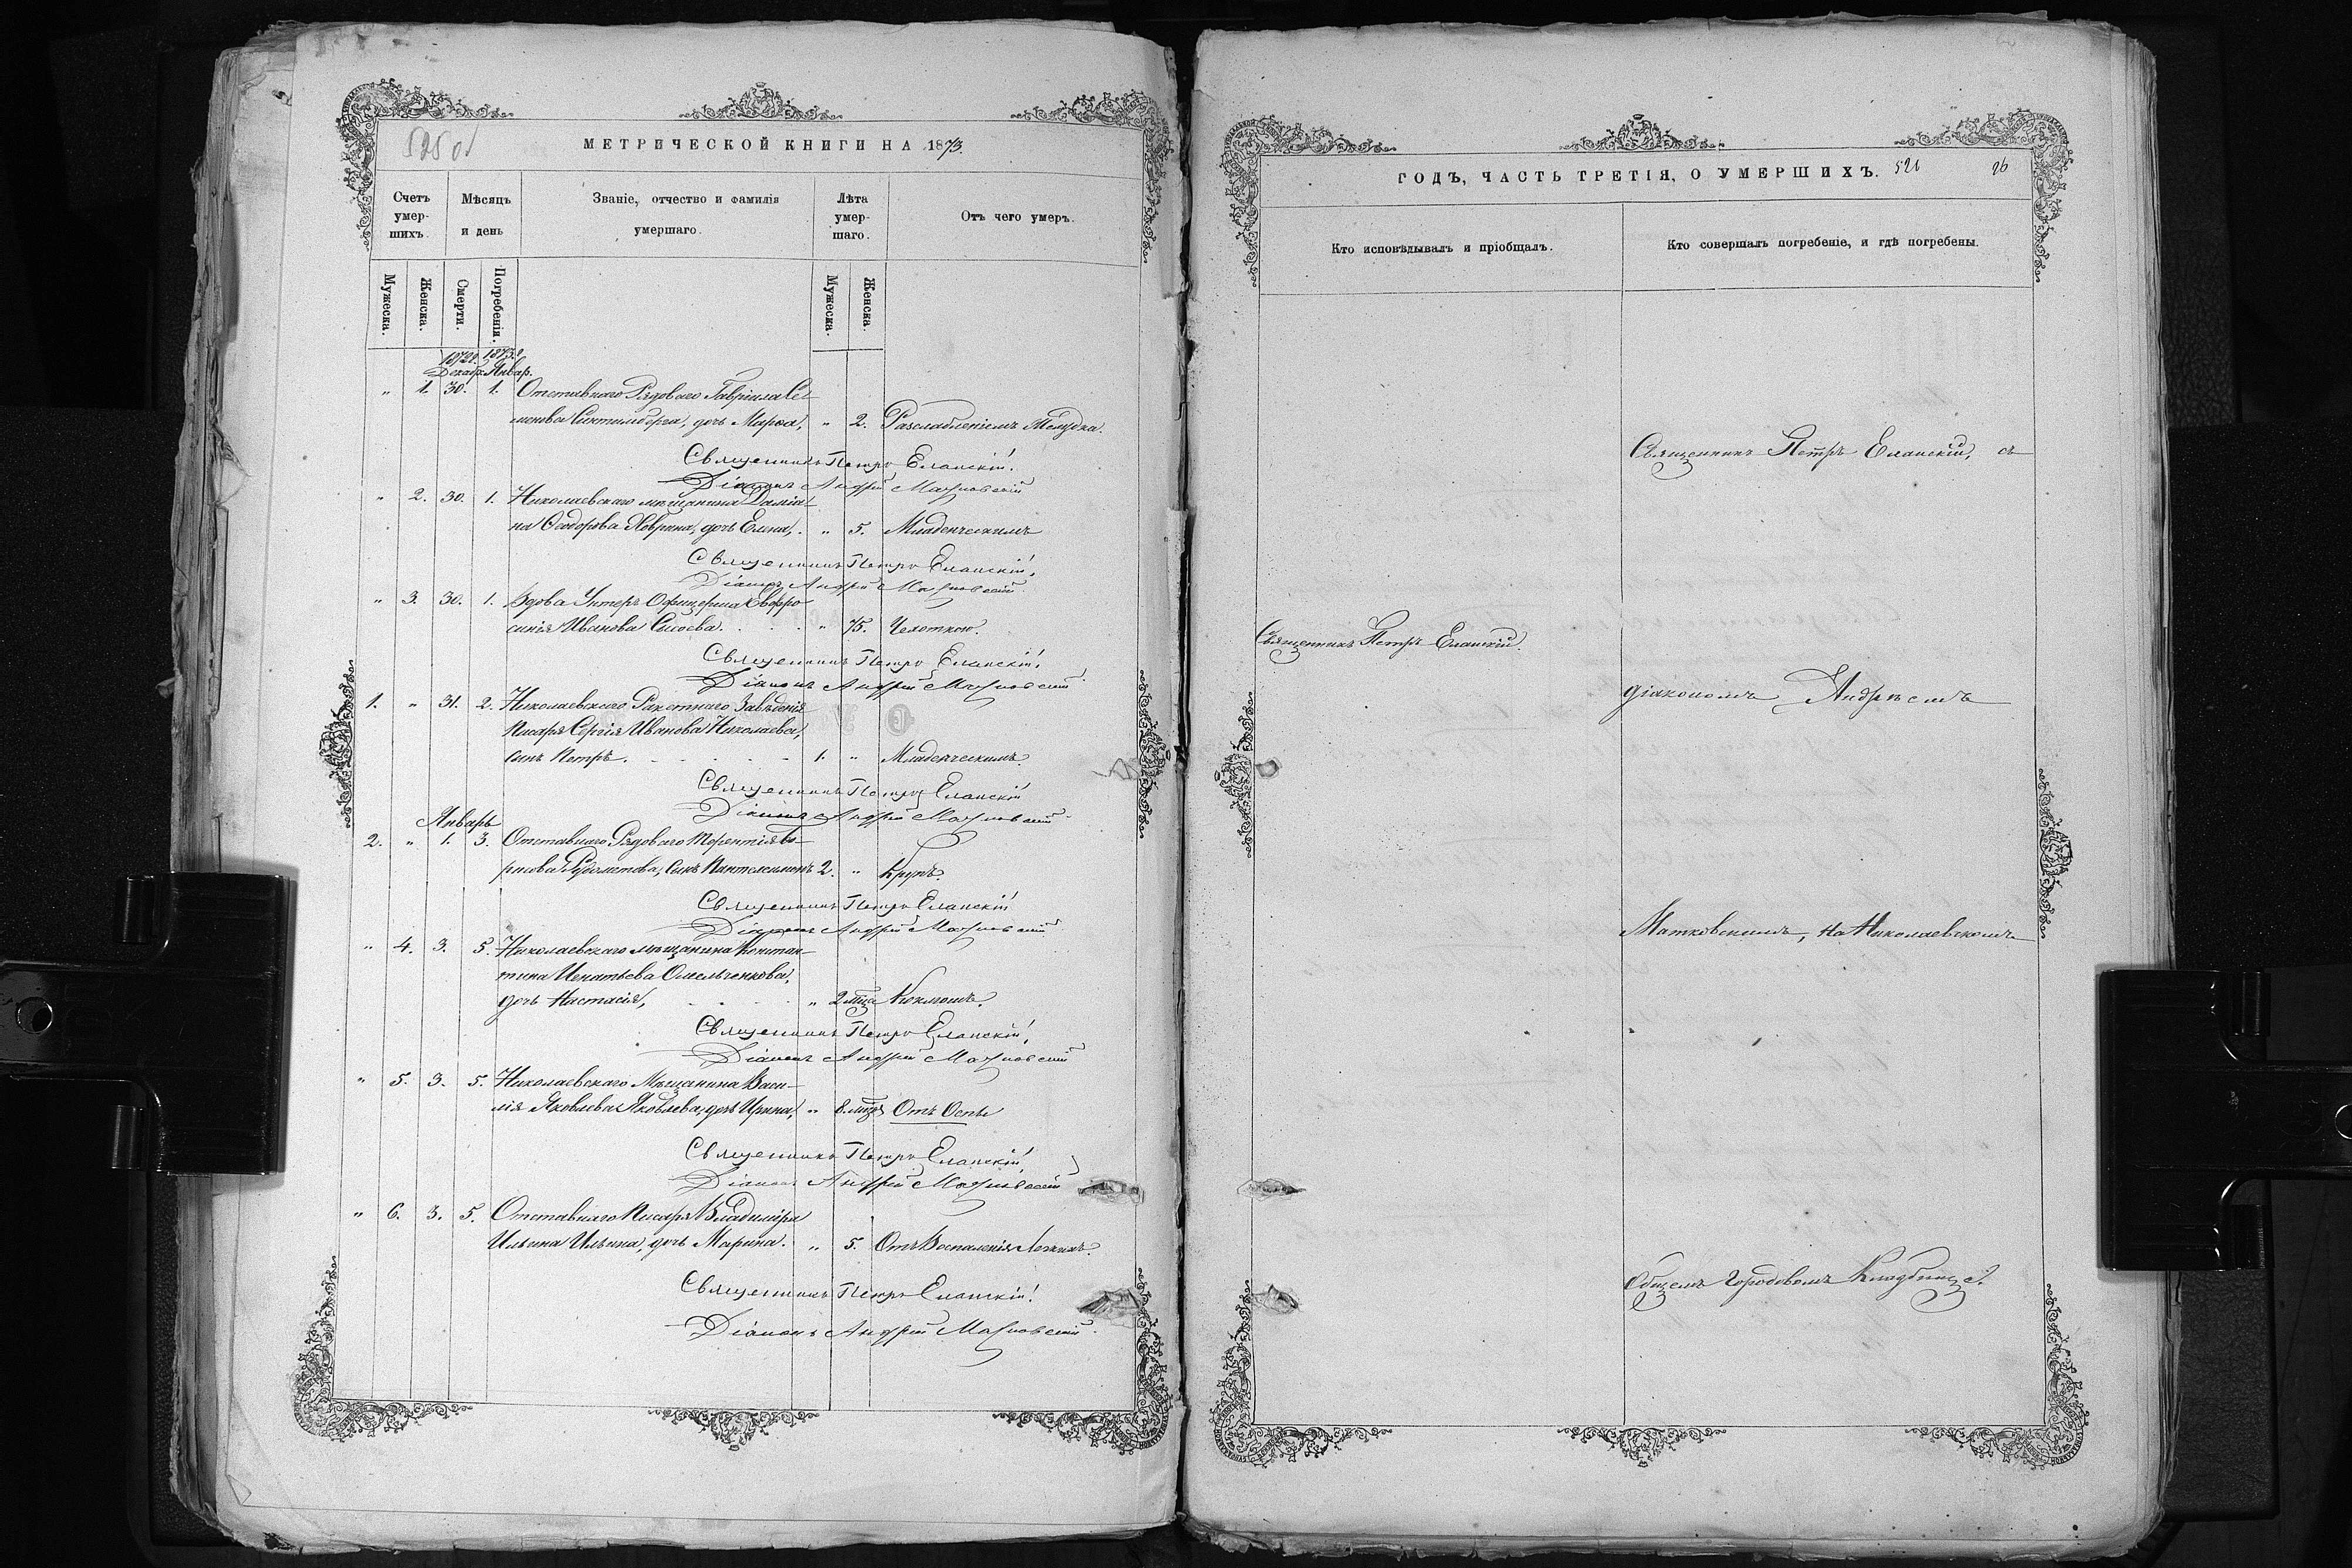 МЕТРИЧЕСКОЙ КНИГИ НА 1873.
Счетъ умер- шихъ.
Мѣсяцъ и день
Званіе, отчество и фамилія умершаго.
Лѣта умер- шаго.
Отъ чего умеръ.
Мужеска.
Женска.
Смерти.
Погребенія.
Мужеска.
Женска.
1872г. 1873г.
Декабр. Январ.
" 1. 30. 1. Отставнаго Рядоваго Гавріила Се-
менова дочь Марѳа, " 2. Разслабленіемъ Желудка.
Священникъ Петръ Еланскій.
Діаконъ Андрей Матковскій
" 2. 30. 1. Николаевскаго мѣщанина Даміа-
на Ѳеодорова дочь Елена, " 5. Младенческимъ
Священникъ Петръ Еланскій.
Діаконъ Андрей Матковскій
" 3. 30. 1. Вдова Унтеръ Офицерша Евфро-
синія Иванова Сысоева. " 75. Чехоткою.
Священникъ Петръ Еланскій.
Діаконъ Андрей Матковскій
1. " 31. 2. Николаевского Ракетнаго Заведенія
Писаря Сергія Иванова Николаева,
сынъ Петръ. 1. " Младенческимъ.
Священникъ Петръ Еланскій
Діаконъ Андрей Матковскій
Январь
2. " 1. 3. Отставнаго Рядоваго Терентія Бо-
рисова сынъ Пантелеимонъ 2. " Крупъ.
Священникъ Петръ Еланскій
Діаконъ Андрей Матковскій
" 4. 3. 5. Николаевскаго мѣщанина Констан-
тина Игнатьева Омельченкова,
дочь Настасія, " 2 мѣся Коклюшъ.
Священникъ Петръ Еланскій,
Діаконъ Андрей Матковскій
" 5. 3. 5. Николаевскаго Мѣщанина Васи-
лія Яковлева Яковлева, дочь Ирина, " 8. Отъ Оспы
Священникъ Петръ Еланскій,
Діаконъ Андрей Матковскій
" 6. 3. 5. Отставнаго Писаря Владиміра
Ильина Ильина, дочь Марина. " 5. Отъ Воспаленія Легкихъ.
Священникъ Петръ Еланскій.
Діаконъ Андрей Матковскій
ГОДЪ, ЧАСТЬ ТРЕТІЯ, О УМЕРШИХЪ. 526 96
Кто исповѣдывалъ и пріобщалъ.
Кто совершалъ погребеніе, и гдѣ погребены.
Священникъ Петръ Еланскій, съ
Священникъ Петръ Еланскій.
діакономъ Андреемъ
Матковскимъ, на Николаевскомъ
Общемъ Городовомъ Кладбищѣ.